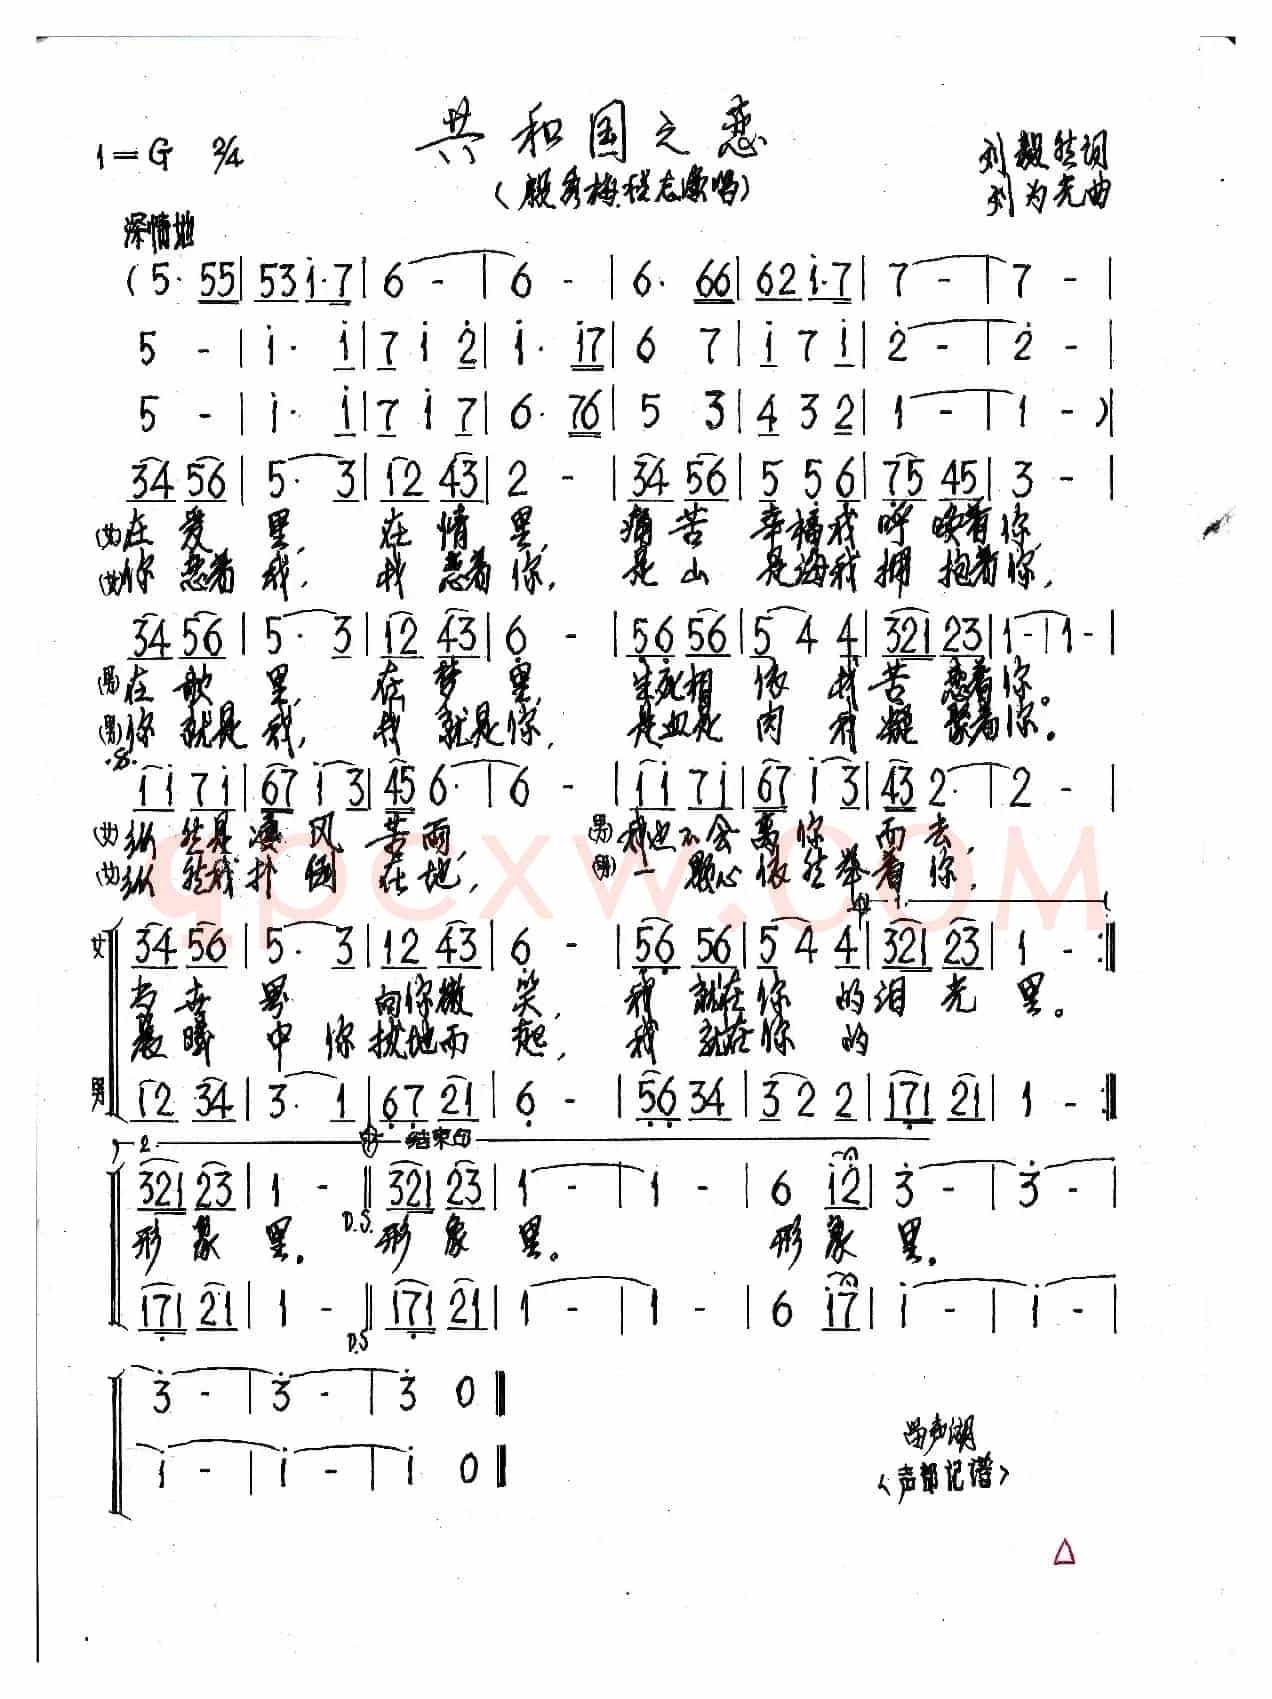 共和国之恋
1=G 2/4
(殷秀梅、程志演唱)
刘毅然词
刘为光曲
深情地
(5· 55|53 1̇·7|6 -|6 -|6· 66|62 1̇·7|7 -|7 -|
5 -|1̇· 1̇|7 1̇ 2̇|1̇· 1̇7|6 7|1̇ 7 1̇|2̇ -|2̇ -|
5 -|1̇· 1̇|7 1̇ 7|6· 76|5 3|4 3 2|1 -|1 -)|
34 56|5· 3|12 43|2 -|34 56|5 5 6|75 45|3 -|
(女)在爱里,在情里,痛苦幸福我呼唤着你,
(女)你恋着我,我恋着你,是山是海我拥抱着你,
34 56|5· 3|12 43|6̣ -|56 56|5 4 4|321 23|1 -|1 -|
(男)在歌里,在梦里,生死相依我苦恋着你。
(男)你就是我,我就是你,是血是肉我凝聚着你。
1̇1̇ 71̇|67 1̇ 3|45 6·|6 -|1̇1̇ 71̇|67 1̇ 3|43 2·|2 -|
(女)纵然是凄风苦雨,(男)我也不会离你而去,
(女)纵然我扑倒在地,(男)一颗心依然举着你,
1.
女 34 56|5· 3|12 43|6̣ -|5̣6̣ 56|5 4 4|321 23|1 -:||
当世界向你微笑,我就在你的泪光里。
晨曦中你拔地而起,我就在你的
男 12 34|3· 1|6̣7̣ 21|6̣ -|5̣6̣ 34|3 2 2|17̣1 21|1 -:||
2. 结束句
321 23|1 -||321 23|1 -|1 -|6 1̇2̇|3̇ -|3̇ -|
D.S.
形象里。形象里。形象里。
17̣1 21|1 -||17̣1 21|1 -|1 -|6 1̇7|1̇ -|1̇ -|
D.S
3̇ -|3̇ -|3̇ 0||
1̇ -|1̇ -|1̇ 0||
(声部记谱)
qpcxw.COM